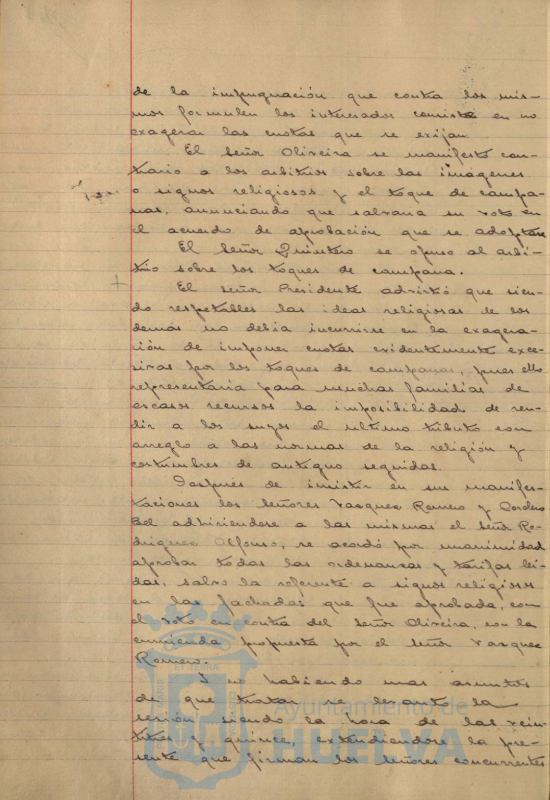 de la impugnación que contra los mis-
mos formulen los interesados consiste en no
exagerar las cuotas que se exijan.
El Señor Oliveira se manifestó con-
trario a los arbitrios sobre las imágenes
o signos religiosos y el toque de campa-
nas, anunciando que salvaria su voto en
el acuerdo de aprobación que se adoptara
El Señor Quintero se opuso al arbi-
trio sobre los toques de campana.
El señor Presidente advirtió que sien-
do respetables las ideas religiosas de los
demás no debia incurrirse en la exagera-
ción de imponer cuotas evidentemente exce-
sivas por los toques de campanas, pues ello
representaria para muchas familias de
escasos recursos la imposibilidad de ren-
dir a los suyos el ultimo tributo con
arreglo a las normas de la religión y
costumbres de antiguo seguidas.
Despues de insistir en sus manifes-
taciones los Señores Vazquez Romero y Cordero
Bel adhiriendose a las mismas el señor Ro-
driguez Alfonso, se acordó por unanimidad
aprobar todas las ordenanzas y tarifas lei-
das, salvo la referente a signos religiosos
en las fachadas que fue aprobada, con
el voto en contra del Señor Oliveira, con la
enmienda propuesta por el señor Vazquez
Romero.
Y no habiendo mas asuntos
de que tratar se levantó la
sesión siendo la hora de las vein-
titres y quince, extendiendose la pre-
sente que firman los señores concurrentes
Ayuntamiento de
HUELVA